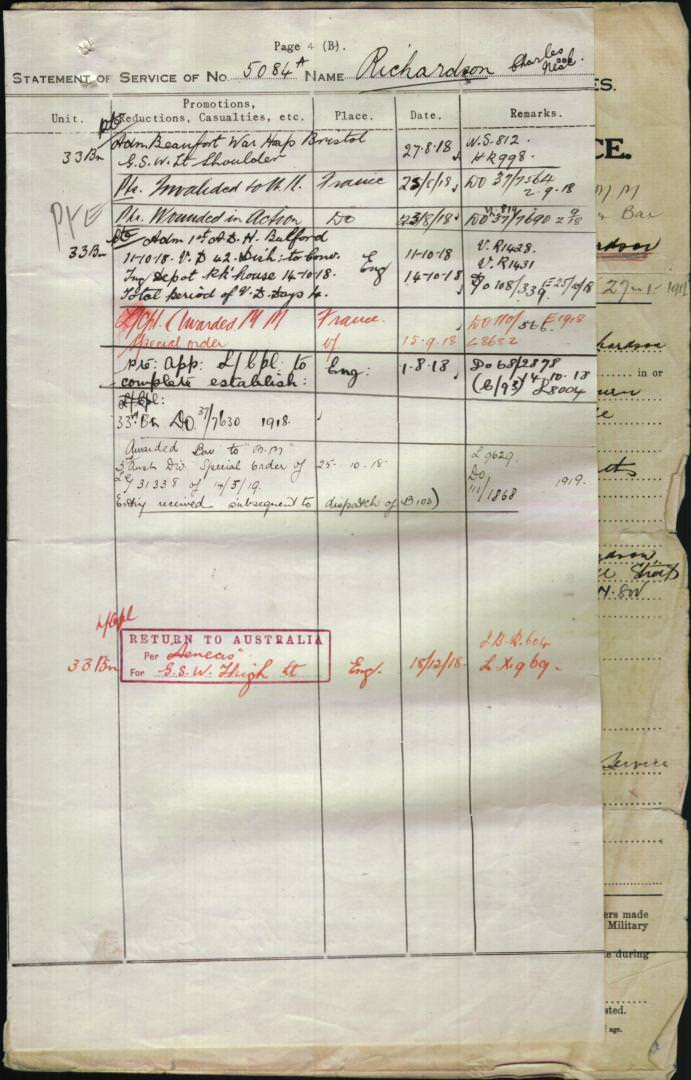 Page 4 (B).
STATEMENT OF SERVICE OF No. 5084A NAME Richardson Charles
Unit. Promotions, Reductions, Casualties, etc. Place. Date. Remarks.
Pte
33 Bn Adm. Beaufort War Hosp Bristol 27-8-18 W.S. 812.
G.S.W. Lt Shoulder H R 998.
Pte. Invalided to U.K. France 25/8/18 DO 37/7564
2-9-18
Pte. Wounded in Action Do 23/8/18 DO 37/7690
Pte
Pte
33 Bn Adm 1st A.D.H. Bulford Eng 11-10-18 V. R1428.
11-10-18. V.D 42. Disch: to Conv. V. R1431
Trng Depot Pk'house 14-10-18. 14-10-18 DO 108/339 E 25/10/18
Total period of V.D. Days 4.
L/Cpl. (Awarded M M France. DO 110/566 E 1918
Special order of 15-9-18 L8652
Pte: app: L/Cpl to Eng: 1-8-18 DO 68/2878
complete establish: (6/93) 14-10-18
L8004
L/Cpl:
33rd Bn DO 37/7630 1918.
Awarded Bar to "M.M" L 9629.
3rd Aust Div Special Order of 25-10-18 DO
L G 31338 of 14/5/19. 111/1868 1919.
Entry received subsequent to dispatch of B103)
L/Cpl
RETURN TO AUSTRALIA
33 Bn Per "Aeneas" Eng. 18/12/18 L.X.969.
For G.S.W. Thigh Lt
ES.
CE.
M M
Bar
in or
Service
ers made
Military
e during
sted.
of age.